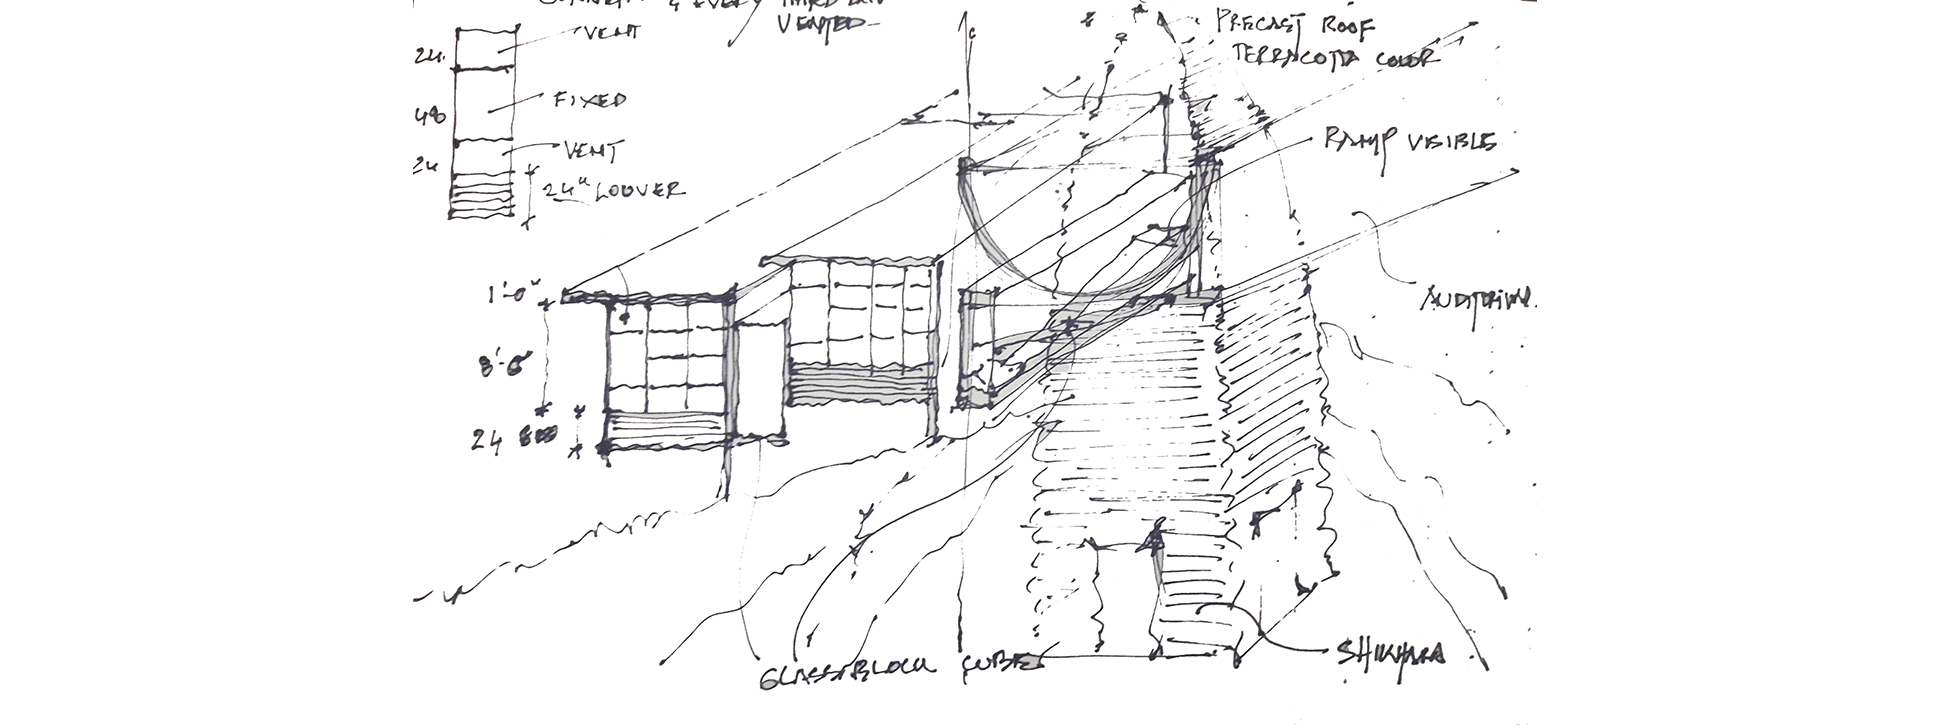 & EVERY THIRD
VENTED
VENT
24
FIXED
48
VENT
24
24" LOUVER
PRECAST ROOF
TERRACOTTA COLOR
RAMP VISIBLE
AUDITORIUM
1'-0"
8'-0"
24
GLASS BLOCK CUBE
SHIKHARA